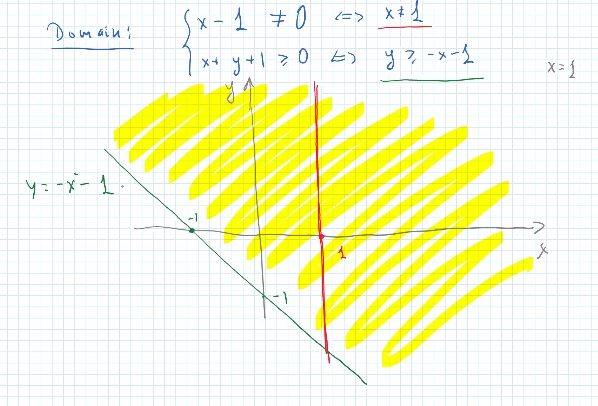 Domain: x - 1 ≠ 0 <=> x ≠ 1
x + y + 1 ≥ 0 <=> y ≥ -x - 1
x = 1
y
y = -x - 1
-1
1
x
-1